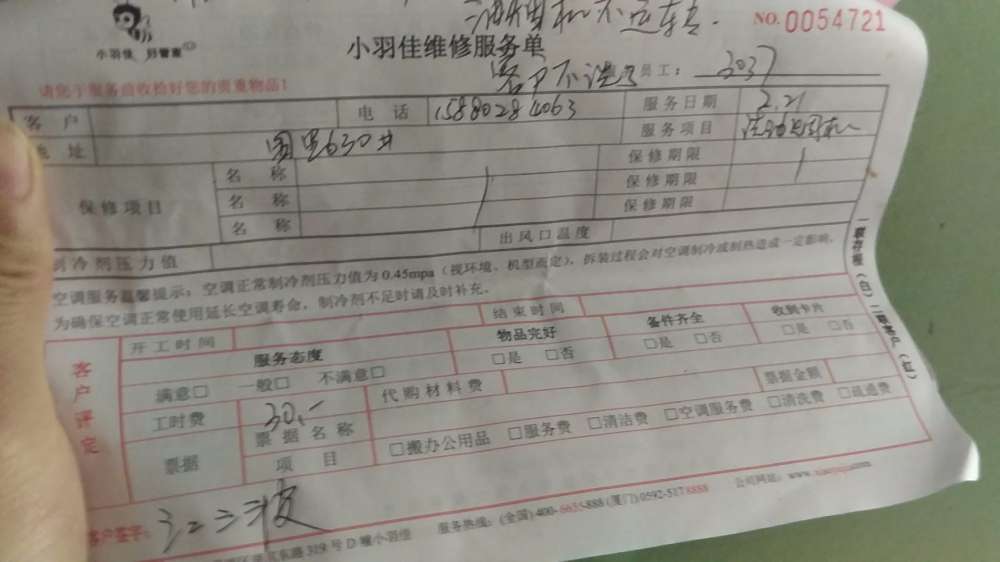 油烟机不运转.
NO. 0054721
小羽佳 好管家
小羽佳维修服务单
客户不洗了 员工: 3037
请您于服务前收拾好您的贵重物品!
客 户 电 话 15880284063 服务日期 2.21
地 址 630# 服务项目
保修项目 名 称 保修期限
名 称 保修期限
名 称 保修期限
制冷剂压力值 出风口温度
空调服务温馨提示: 空调正常制冷剂压力值为 0.45mpa (视环境、机型而定), 拆装过程会对空调制冷或制热造成一定影响,
为确保空调正常使用延长空调寿命, 制冷剂不足时请及时补充.
客户评定 开工时间 结束时间
服务态度 物品完好 备件齐全 收到卡片
满意□ 一般□ 不满意□ □是 □否 □是 □否 □是 □否
工时费 30.- 代购材料费 票据金额
票据 票据名称
项 目 □搬办公用品 □服务费 □清洁费 □空调服务费 □清洗费 □疏通费
客户签字:
319 号 D 幢小羽佳 服务热线: (全国) 400-6635-888 (厦门) 0592-5178888 公司网站: www.xiaoyujia.com
一联存根(白) 二联客户(红)